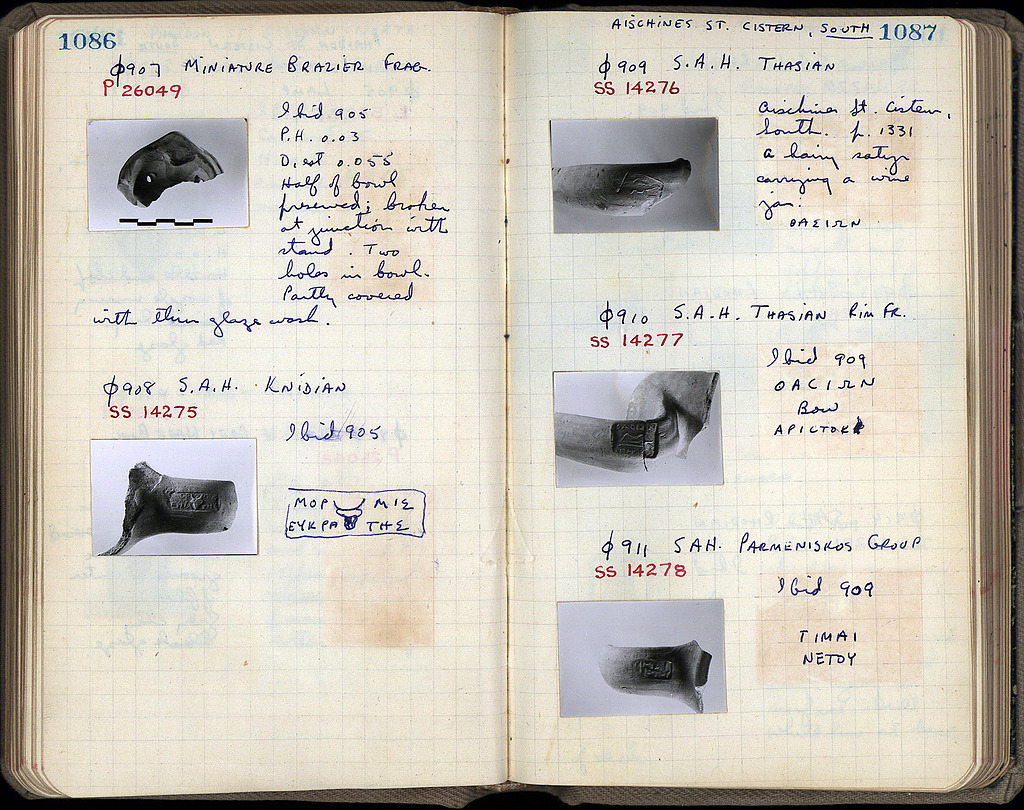 1086
φ907 MINIATURE BRAZIER FRAG.
P 26049
Ibid 905
P.H. 0.03
D. est 0.055
Half of bowl
preserved; broken
at junction with
stand. Two
holes in bowl.
Partly covered
with thin glaze wash.
φ908 S.A.H. KNIDIAN
SS 14275
Ibid 905
ΜΟΡ ΜΙΣ
ΕΥΚΡΑ ΤΗΣ
AISCHINES ST. CISTERN, SOUTH 1087
φ909 S.A.H. THASIAN
SS 14276
Aischines St. Cistern,
South. p. 1331
a hairy satyr
carrying a wine
jar.
ΘΑΣΙΩΝ
φ910 S.A.H. THASIAN RIM FR.
SS 14277
Ibid 909
ΘΑCΙΩΝ
Bow
ΑΡΙCΤΟΚ
φ911 SAH. PARMENISKOS GROUP
SS 14278
Ibid 909
ΤΙΜΑΙ
ΝΕΤΟΥ